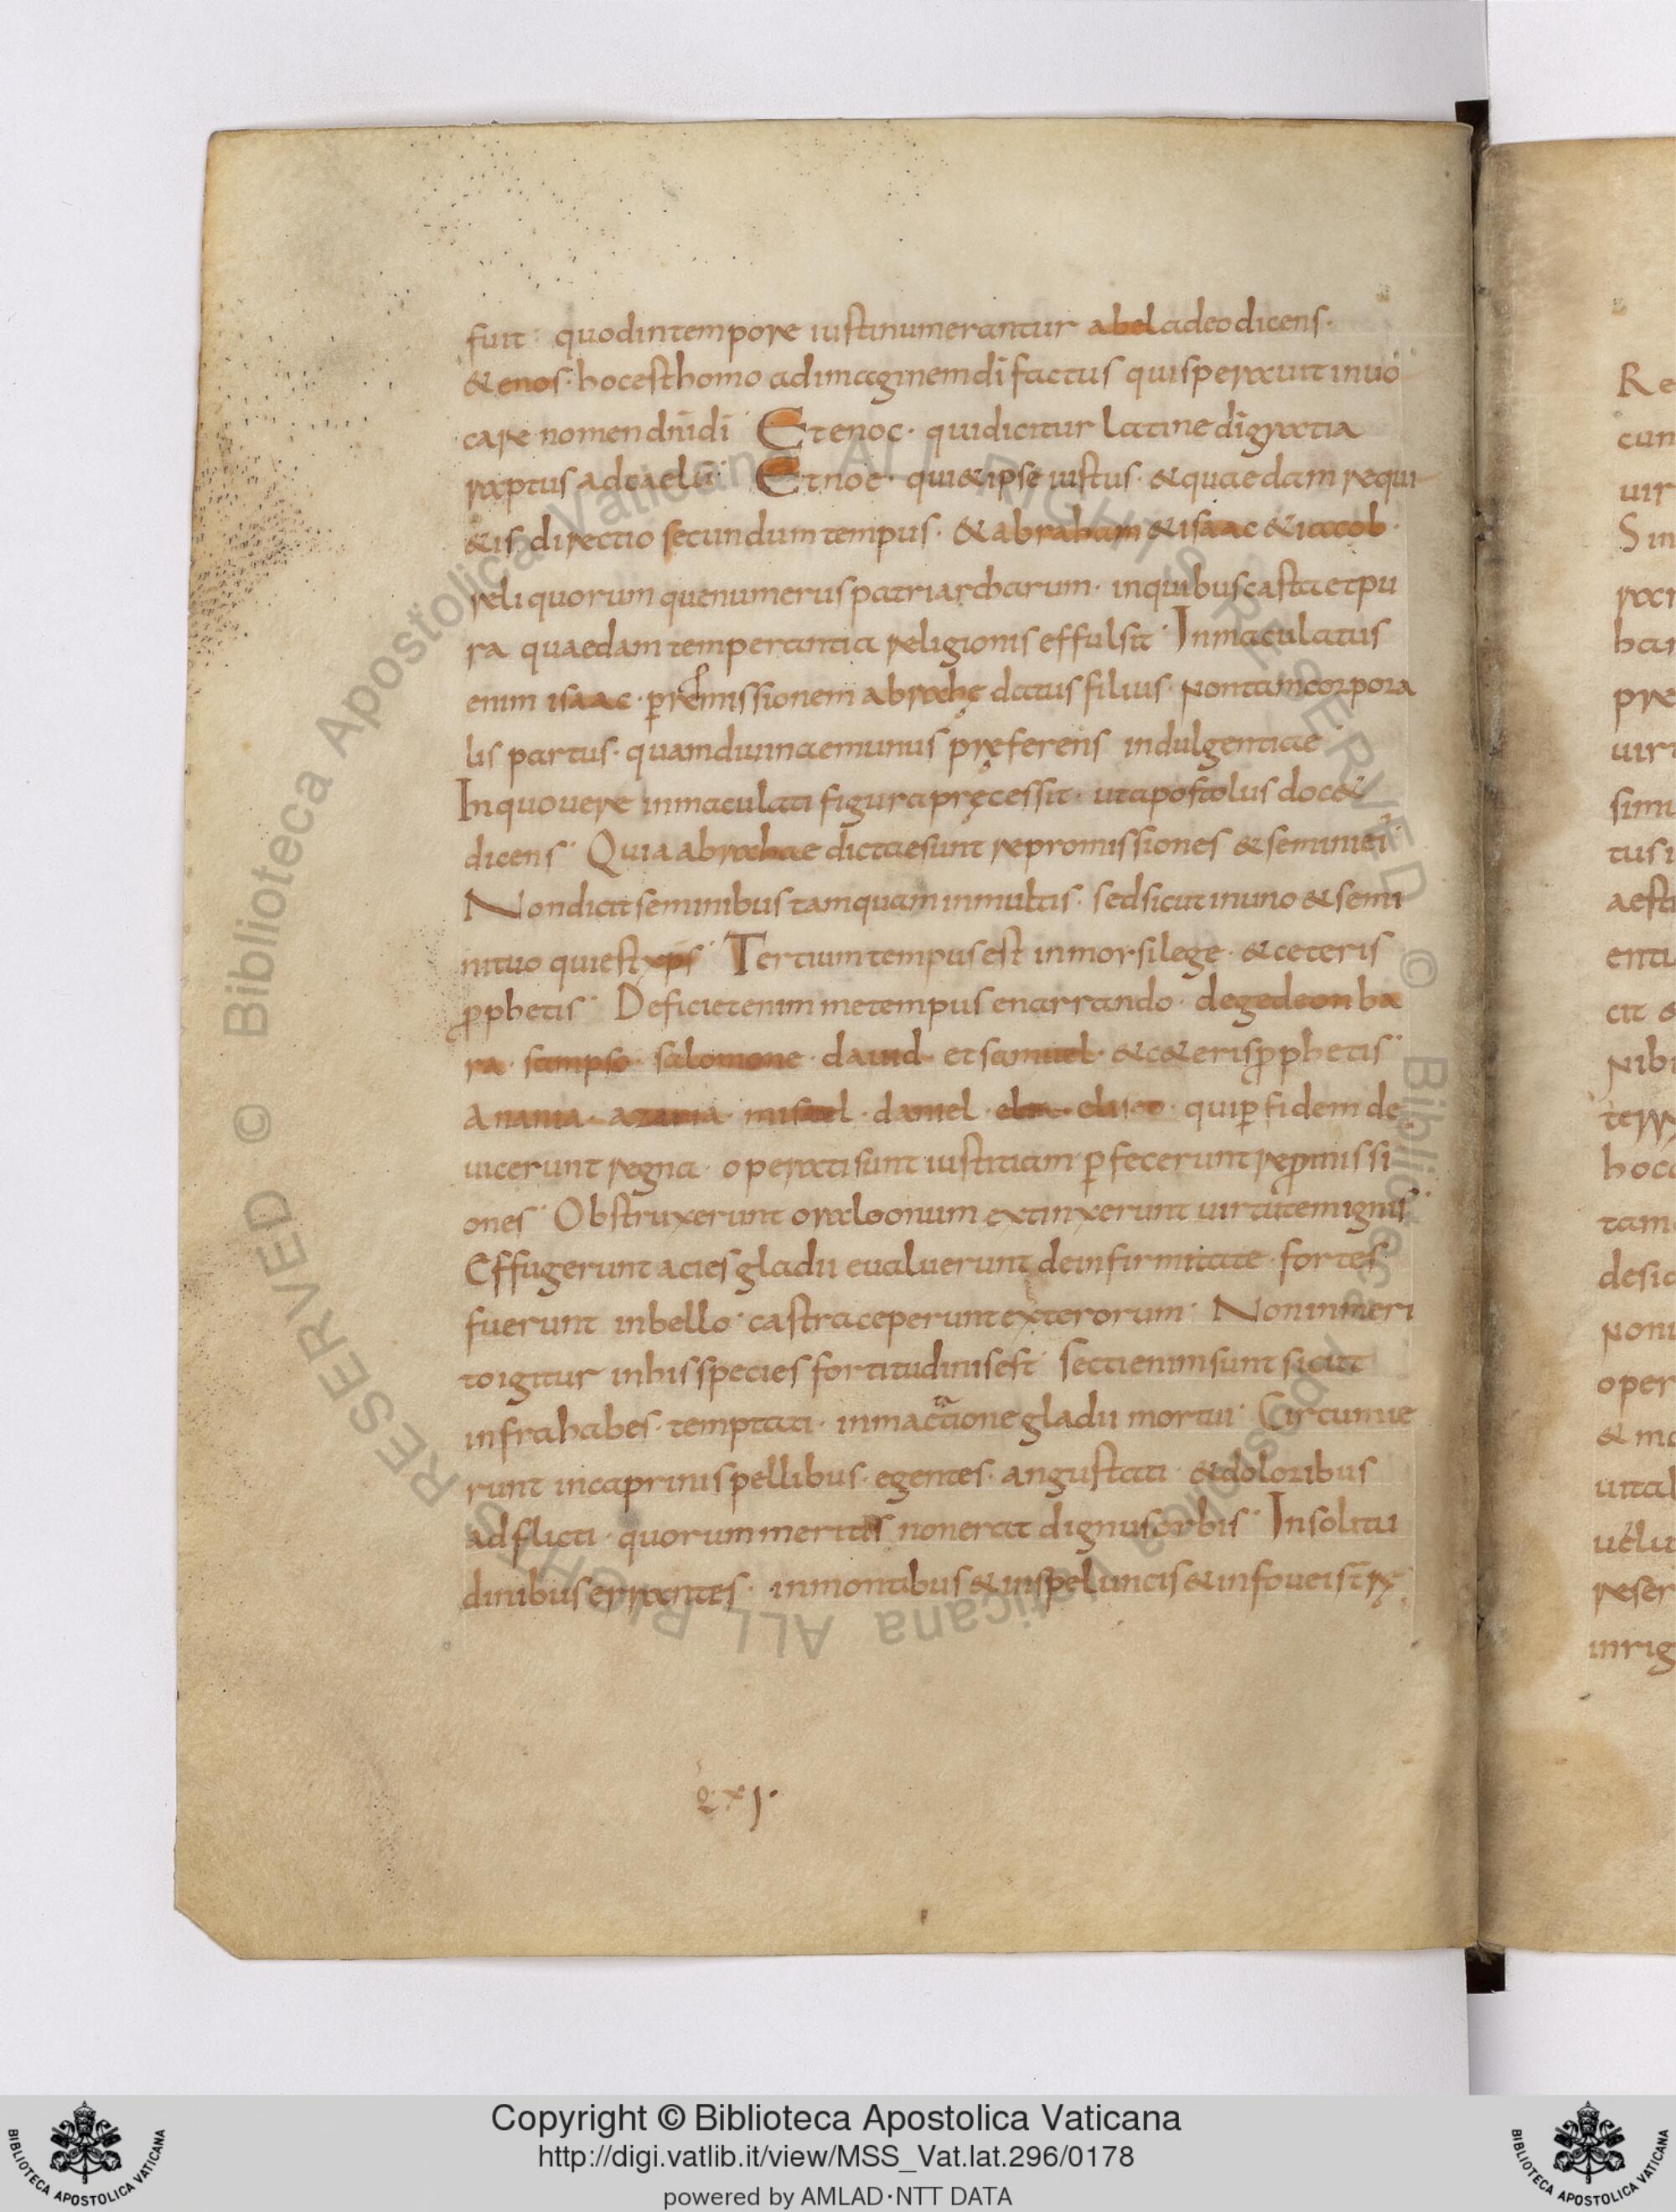 fuit · quodintempore iustinumerantur abeladeodicens ·
& enos · hocesthomo adimaginemdī factus quisperauitinuo
care nomendn̄idī · Etenoc · quidicitur latine dīgratia
raptus adcaelū · Etnoe · qui&ipse iustus · &quaedam requi
&is directio secundumtempus · &abraham &isaac &iacob ·
reliquorumquenumeruspatriarcharum · inquibuscastaetpu
ra quaedamtemperantia religioniseffulsit · Inmaculatus
enim isaac · p̄remissionem abrahę datusfilius · nontamcorpora
lis partus · quamdiuinaemunus pręferens indulgentiae ·
Inquouere inmaculati figurapręcessit · utapostolus doc&
dicens · Quiaabrahae dictaesunt repromissiones &seminiei ·
Nondicitseminibustamquaminmultis · sedsicutinuno &semi
nituo quiestxp̄s · Tertiumtempusest inmorsilege · &ceteris
ꝓphetis · Deficietenimmetempusenarrando · degedeon ba
ra · sampso · salomone · dauid · etsamuel · &c&erisꝓphetis ·
Anania · azaria · misael · daniel · elia · eliseo · quiꝑfidem de
uicerunt regna · operatisunt iustitiam ꝑfecerunt reꝓmissi
ones · Obstruxerunt oraleonum extinxerunt uirtutemignis ·
Effugerunt acies gladii eualuerunt deinfirmitate · fortes
fuerunt inbello · castraceperuntexterorum · Noninmeri
toigitur inhisspecies fortitudinisest · sectienimsunt sicut
infrahabes · temptati · inmactationegladii mortui · Circumie
runt incaprinispellibus · egentes · angustati &doloribus
adflicti · quorummeritis nonerat dignusorbis · Insolitu
dinibuserrantes · inmontibus&inspeluncis&infoueistrę
Re
cun
uir
Sin
bar
pre
uiri
simi
tusi
aesta
enti
cit &
nibi
hoc
tam
desid
noni
oper
& mo
uital
uelu
reser
inrig
Biblioteca Apostolica Vaticana ALL RIGHTS RESERVED ©
Biblioteca Apostolica Vaticana ALL RIGHTS RESERVED ©
Copyright © Biblioteca Apostolica Vaticana
http://digi.vatlib.it/view/MSS_Vat.lat.296/0178
powered by AMLAD·NTT DATA
BIBLIOTECA APOSTOLICA VATICANA
BIBLIOTECA APOSTOLICA VATICANA